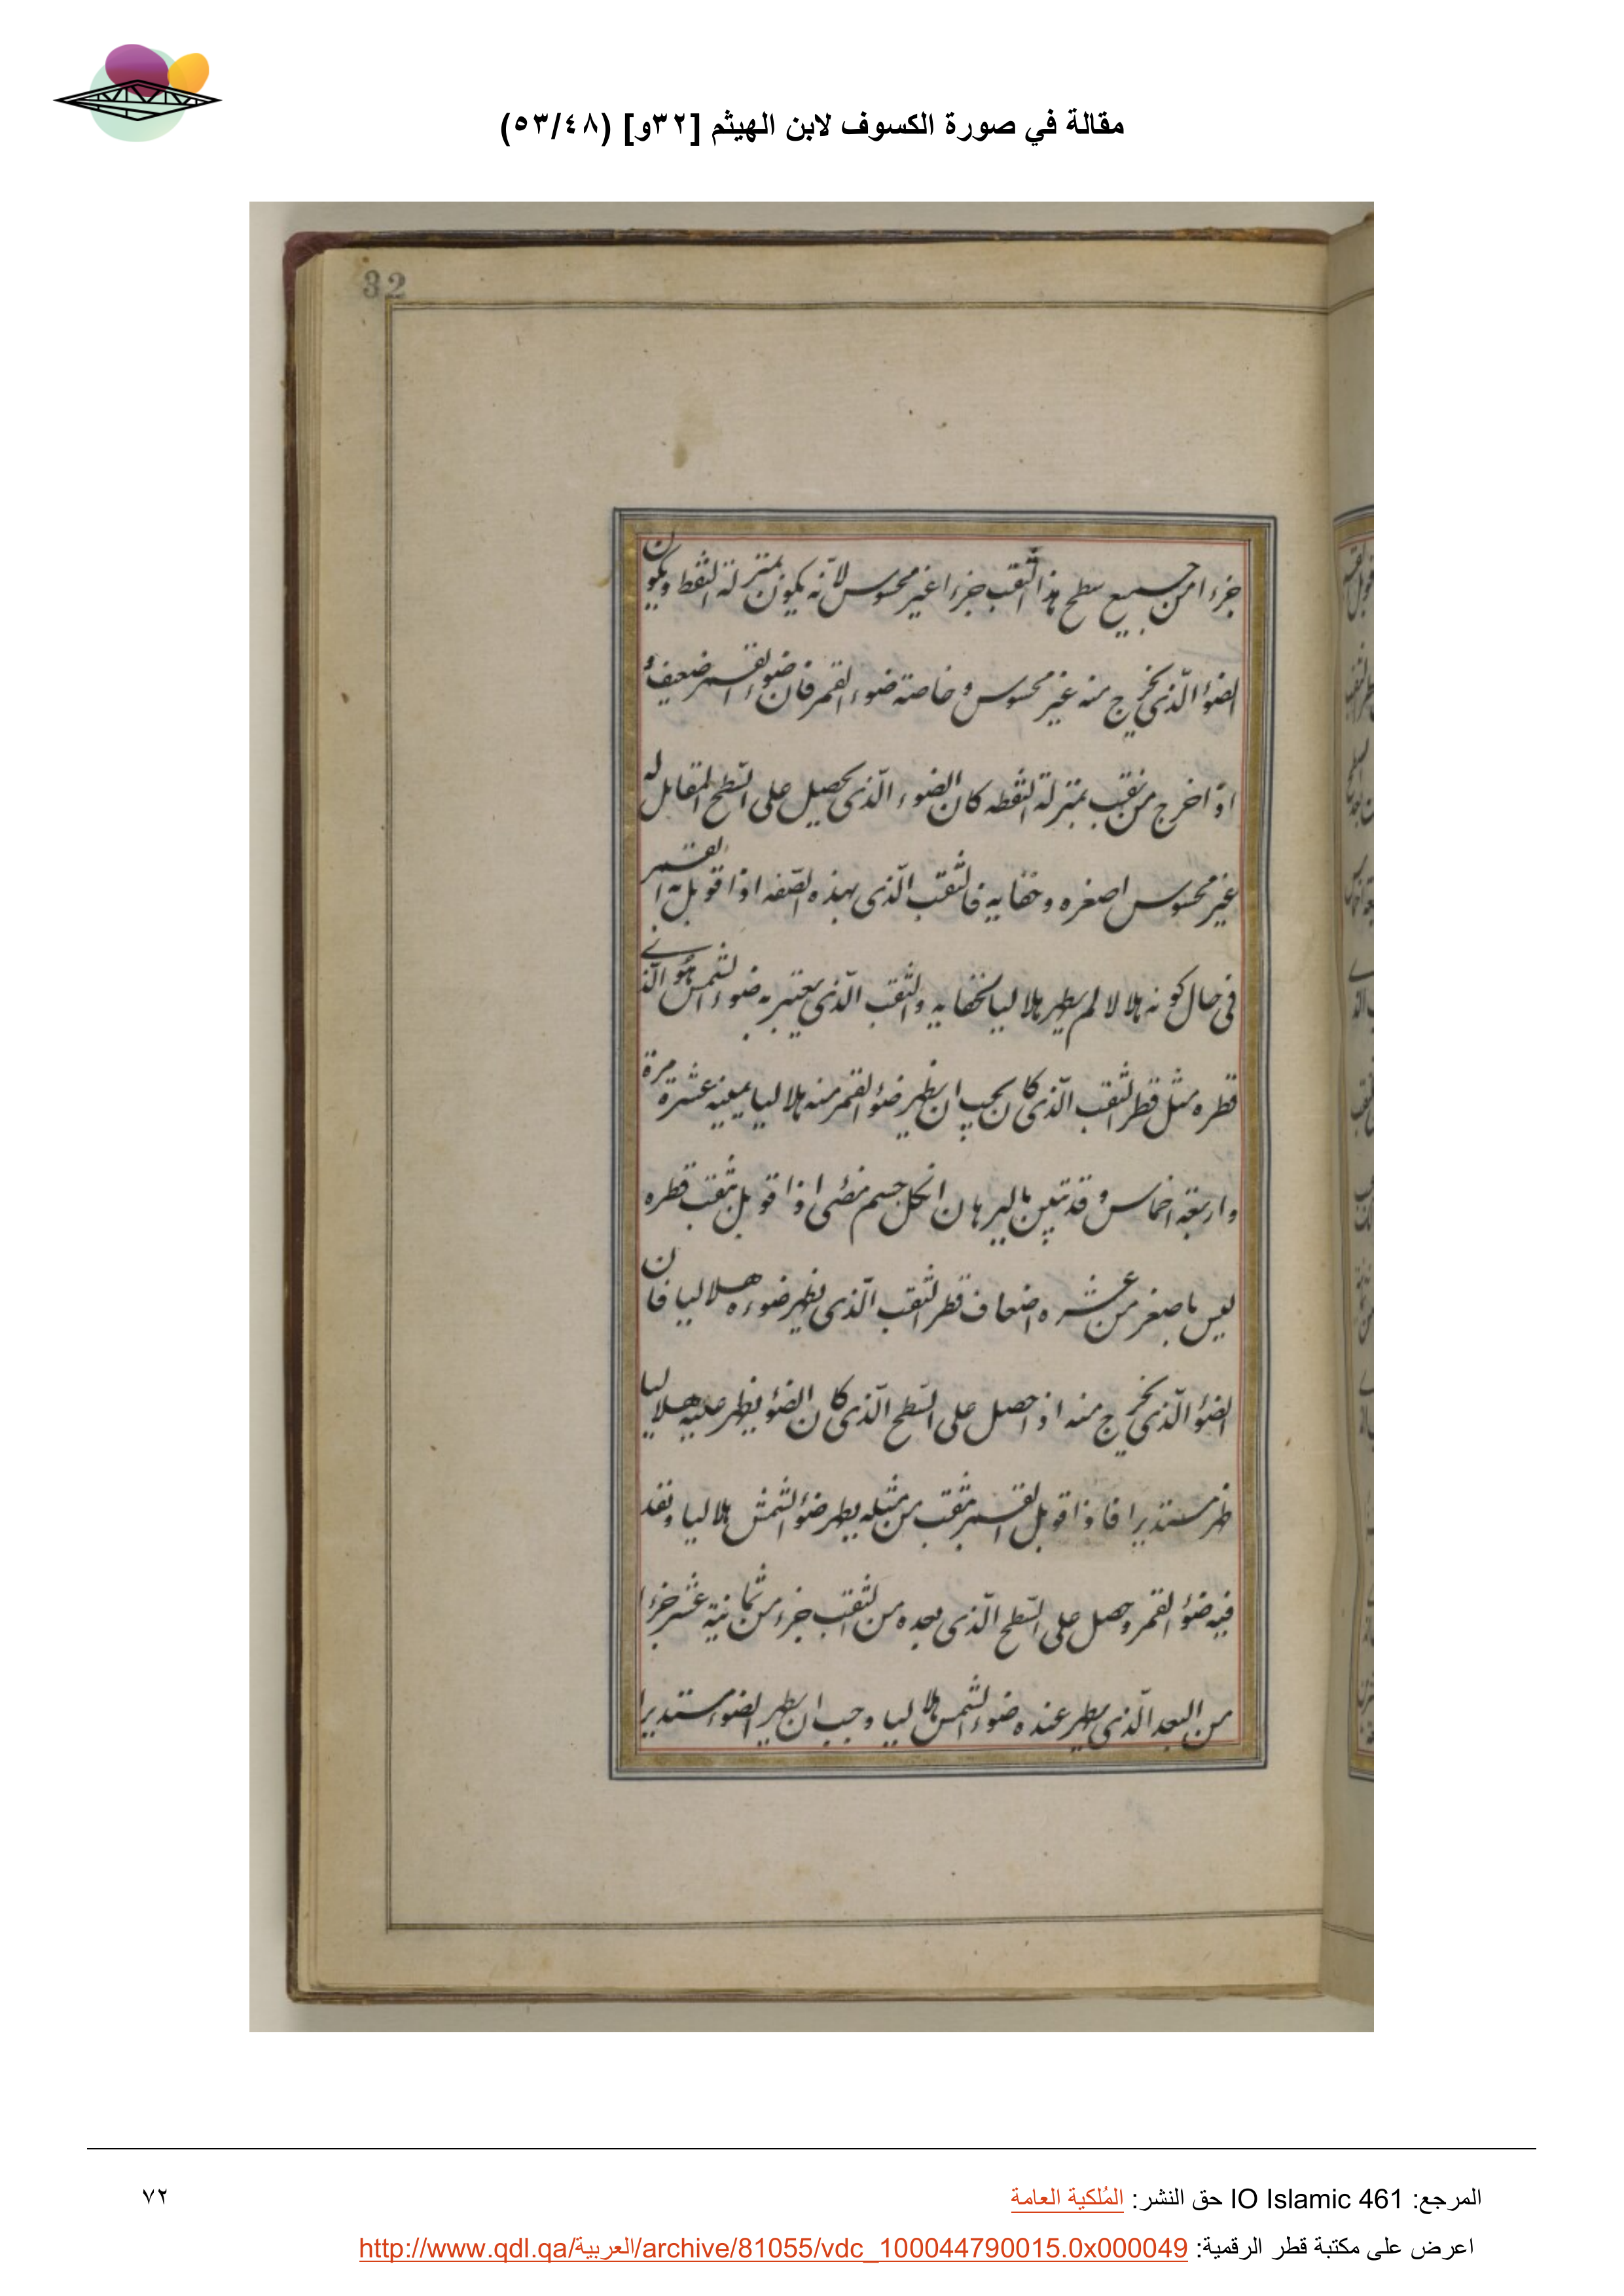 مقالة في صورة الكسوف لابن الهيثم [٣٢و] (٥٣/٤٨)
32
جزءا من جميع سطح هذا الثقب جزءا غير محسوس لانّه يكون بمنزلة النقط ويكون
الضوء الّذى يخرج منه غير محسوس و خاصته ضوء القمر فان ضوء القمر ضعيف و
اذا خرج من ثقب بمنزلة النقطه كان الضوء الّذى يحصل على السّطح المقابل له
غير محسوس اصغره و خفايه فالثقب الّذى بهذه الصّفه اذا قوبل به القمر
فى حال كونه هلالا لم يظهر هلاليا لخفايه والثقب الّذى يعتبر به ضوء الشمس هو الّذى
قطره مثل قطر الثقب الّذى كان يجب ان يظهر ضوء القمر منه هلاليا بعينه عشرة مرة
واربعة اخماس و قد تبين بالبرهان ان كل جسم مضىء اذا قوبل بثقب قطره
ليس باصغر من عشره اضعاف قطر الثقب الّذى يظهر ضوءه هلاليا فان
الضوء الّذى يخرج منه اذا حصل على السّطح الّذى كان الضوء يظهر عليه هلاليا
ظهر مستديرا فاذا قوبل القمر بثقب من مثله يظهر ضوء الشمس هلاليا ونفد
فيه ضوء القمر وحصل على السّطح الّذى بعده من الثقب جزء من ثمانية عشر جزءا
من البعد الّذى يظهر عنده ضوء الشمس هلاليا وجب ان يظهر الضوء مستديرا
المرجع: IO Islamic 461 حق النشر: المُلكية العامة
٧٢
اعرض على مكتبة قطر الرقمية: http://www.qdl.qa/العربية/archive/81055/vdc_100044790015.0x000049